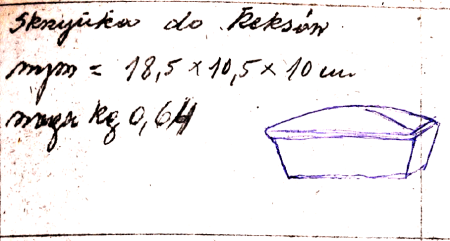 Skrzynka do Keksów
wym = 18,5 x 10,5 x 10 cm
waga kg 0,64